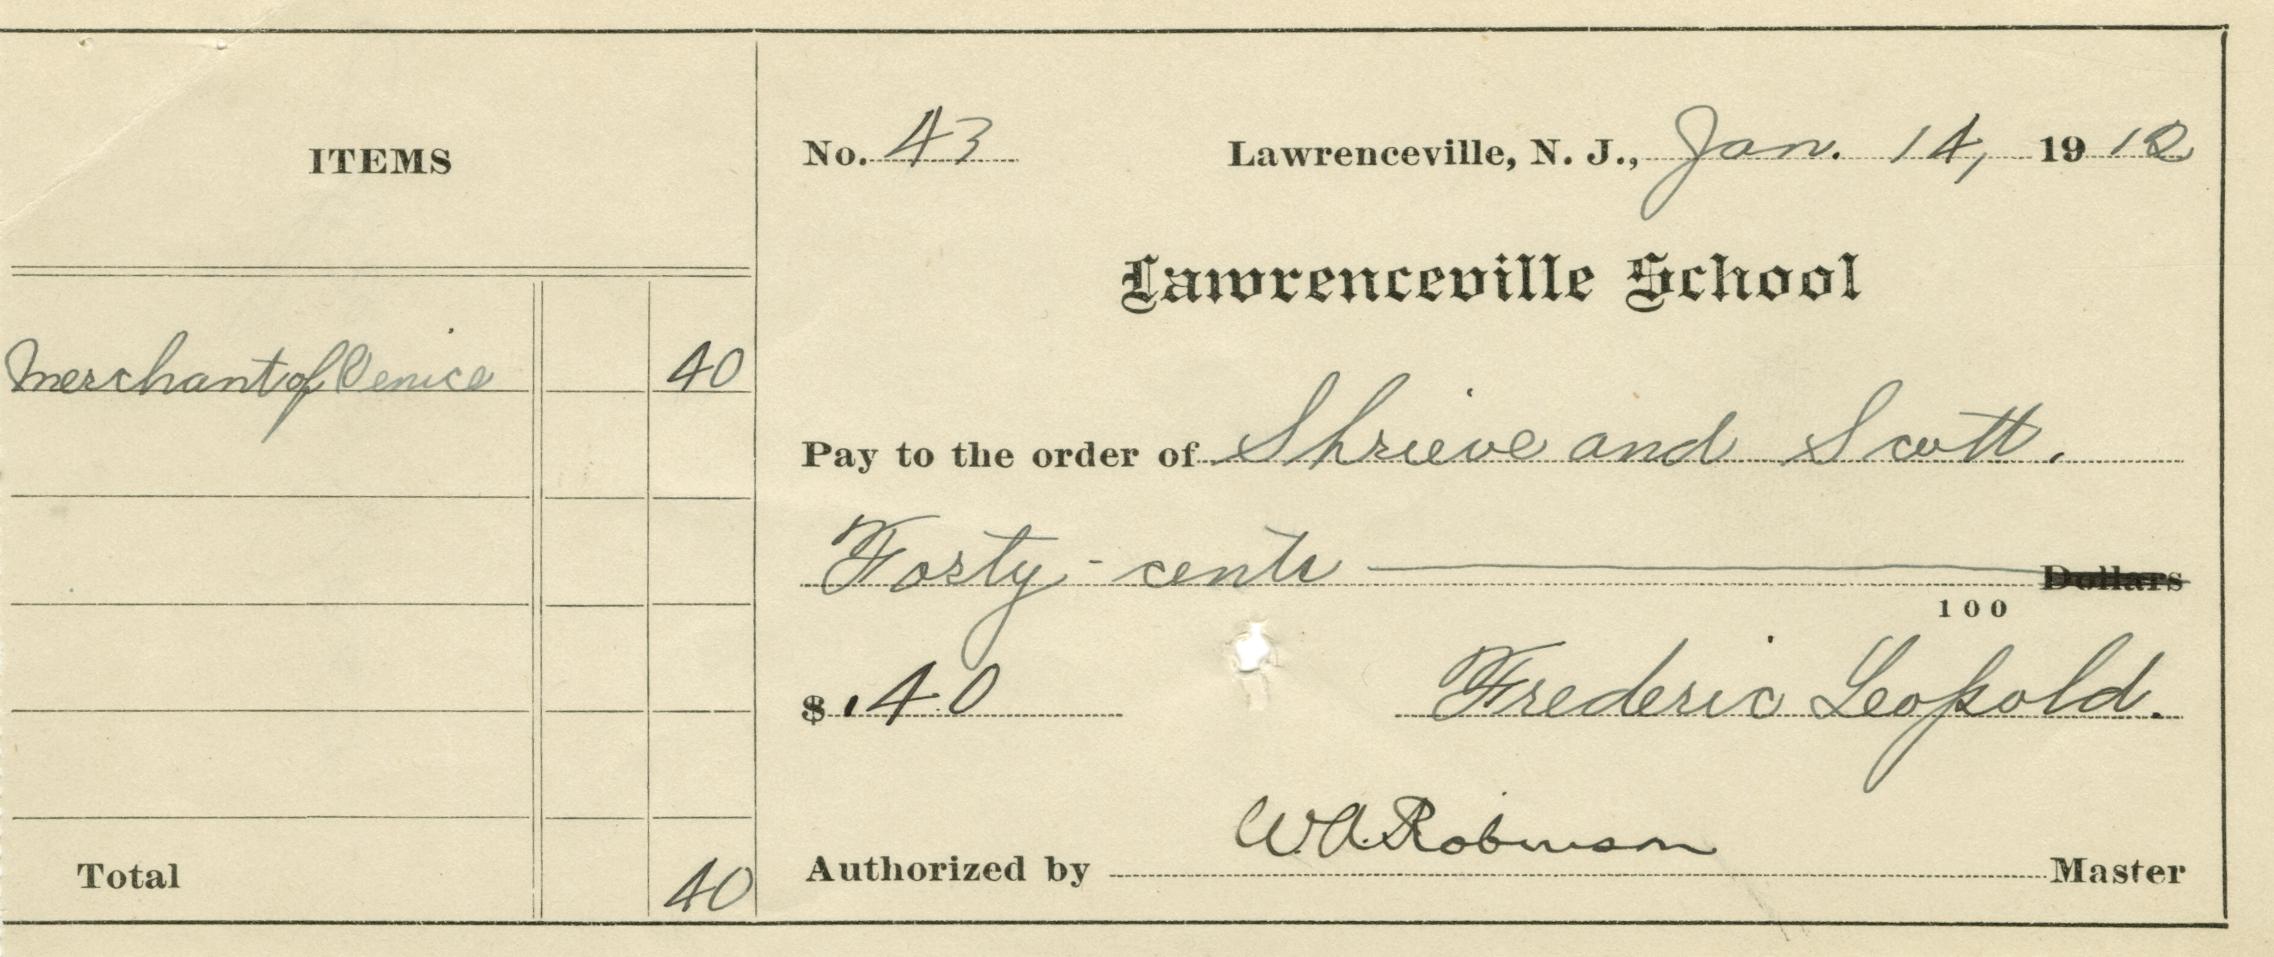 ITEMS
Merchant of Venice 40
Total 40
No. 43 Lawrenceville, N. J., Jan. 14, 1912
Lawrenceville School
Pay to the order of Shrieve and Scott.
Forty - cents Dollars
100
$ .40 Frederic Leopold.
Authorized by W.A. Robinson Master